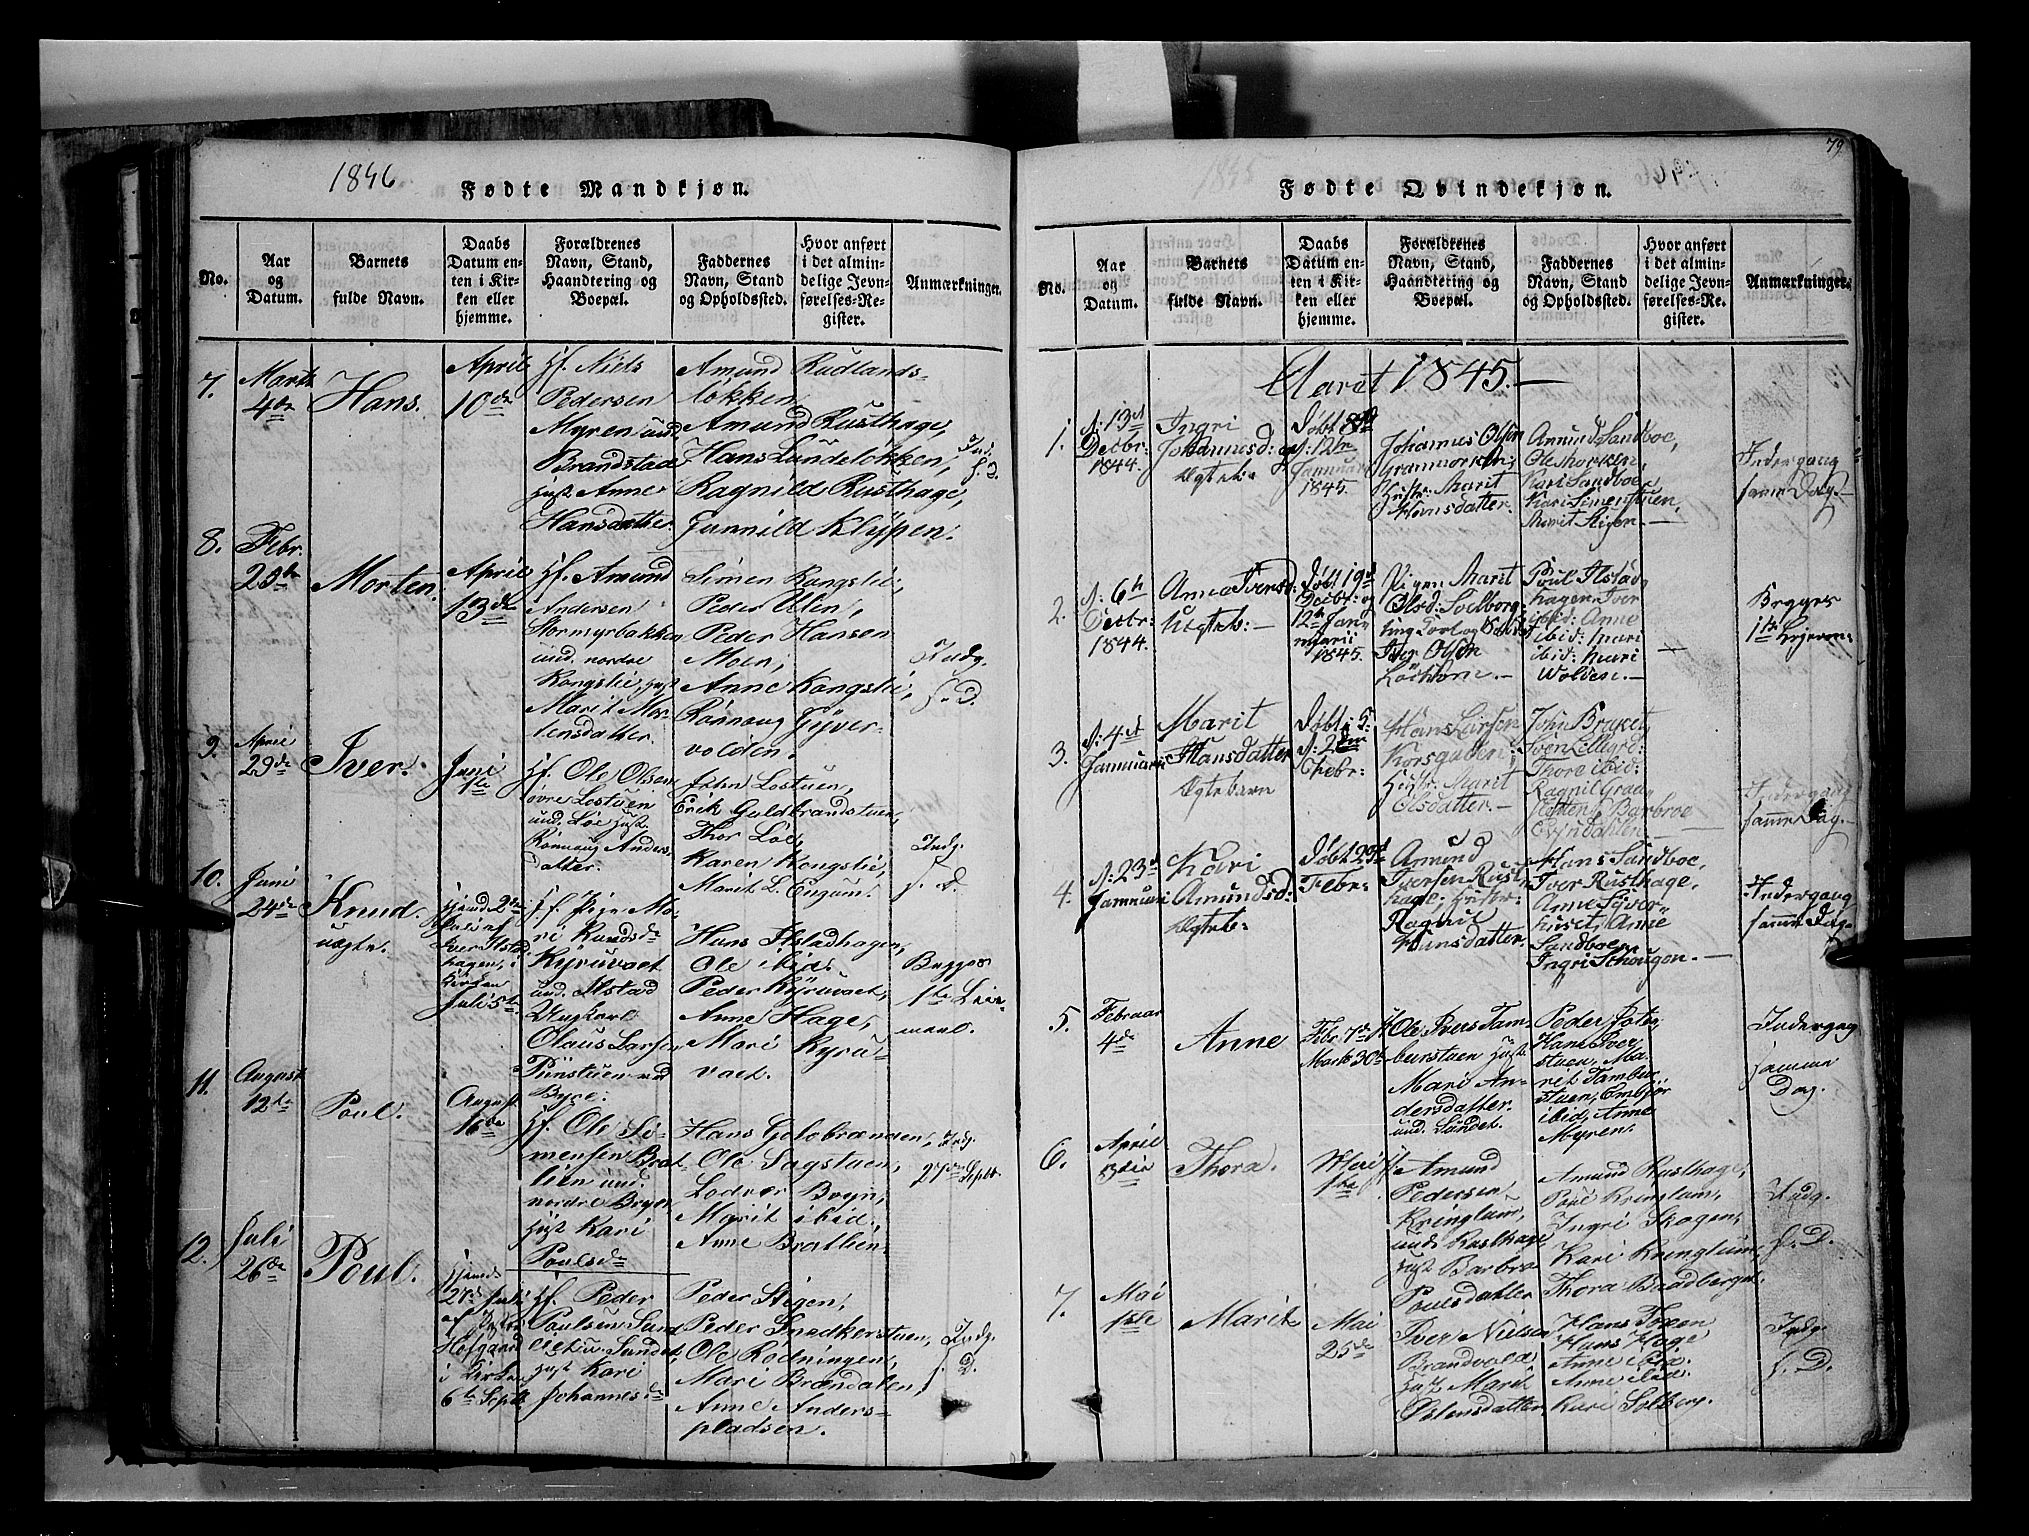 1846
Fødte Mandkjøn.
No.
Aar
og
Datum.
Barnets
fulde Navn.
Daabs
Datum en-
ten i Kir-
ken eller
hjemme.
Forældrenes
Navn, Stand,
Haandtering og
Boepæl.
Faddernes
Navn, Stand
og Opholdssted.
Hvor anført
i det almin-
delige Jevn-
førelses-Re-
gister.
Anmærkninger.
7.
Marts
4de
Hans.
April
10de
Hf. Niels
Pedersen
Myren und.
Brandstad
Hust. Anne
Hansdatter.
Amund Rudlands-
løkken,
Amund Rusthage,
Hans Lundeløkken,
Ragnild Rusthage,
Gunnild Klyppen.
Indg.
s. D.
8.
Febr.
25de
Morten.
April
13de
Hf. Amund
Andersen
Stormyrbakken
und. nordre
Kongslie, Hust
Marit Mor-
tensdatter.
Simen Kongslie,
Peder Ulen,
Peder Hansen
Moen,
Anne Kongslie,
Rønnaug Gyver-
volden.
Indg.
s. D.
9.
April
29de
Iver.
Juni
1te
Hf. Ole Olsen
øvre Lostuen
und. Løe Hust.
Rønnaug Anders-
datter.
John Lostuen,
Erik Guldbrandstuen,
Thor Løe,
Karen Kongslie,
Marit L. Engum.
Indg.
s. D.
10.
Juni
24de
Knud.
uægte.
Hjemd. 2den
Juli af
Iver Ilstad-
hagen, i
Kirken
Juli 5te
Pige Ma-
ri Knudsdr
Kyruvaet
und. Ilstad
Ungkarl
Olaus Larsen
Hans Ilstadhagen,
Ole ibid,
Peder Kyruvaet,
Anne Hage,
Mari Kyru-
vaet.
Begges
1te Leie-
maal.
11.
August
12te
Poul.
August
16de
Hf. Ole Si-
mensen Brat-
lien und.
nordre Bryn
Hust Kari
Poulsdr
Hans Golobrænden,
Ole Sagstuen,
Lodvær Bryn,
Marit ibid,
Anne Bratlien.
Indg.
27de Septr.
12.
Juli
26de
Poul.
Hjemd.
27de Juli
af
Hofgaard
i Kirken
6te Septb.
Hf. Peder
Poulsen Sund
Hust Kari
Johannesdr
Peder Stigen,
Peder Snedkerstuen,
Ole Rødningen,
Mari Brændalen,
Anne Anders-
pladsen.
Indg.
s. D.
79.
Fødte Qvindekjøn.
No.
Aar
og
Datum.
Barnets
fulde Navn.
Daabs
Datum en-
ten i Kir-
ken eller
hjemme.
Forældrenes
Navn, Stand,
Haandtering og
Boepæl.
Faddernes
Navn, Stand
og Opholdssted.
Hvor anført
i det almin-
delige Jevn-
førelses-Re-
gister.
Anmærkninger.
Aaret 1845.
1.
d: 13de
Decbr:
1844.
Ingri
Johannesd:
Ægteb:
Døbt
d: 12te
Januari
1845.
Johannes Olsen
Hustr: Marit
Hansdatter.
Amund Sandboe,
Kari Sandboe,
Kari Simenstuen,
Marit Stigen.
Indergang
samme Dag.
2.
d: 6te
Decbr:
1844.
Anne Iversd:
Uegteb:
Døbt 19de
Decbr: og
12te Janu-
arii
1845.
Pigen Marit
Olsd: Solberg
Iver Olsen
Poul Ilstad-
hagen, Iver
ibid: Anne
ibid: Mari
ibid: Mari
Wolden.
Begges
1te
3.
d: 4de
Januari
Marit
Hansdatter
Ægtebarn
Døbt
d: 2den
Febr:
Hans Larsen
Hustr: Marit
Olsdatter.
Thore ibid:
Barbroe
Indergang
samme Dag.
4.
d: 23de
Januari
Kari
Amundsd:
Ægteb:
Døbt 23de
Febr:
Amund
Iversen Rust-
hage. Hustr:
Ragnil
Hansdatter.
Hans Sandboe,
Iver Rusthage,
Anne Syver-
huset, Anne
Sandboen
Ingri Schougen.
Indergang
samme Dag.
5.
Februar
4de
Anne
Febr. 7de
Marts 30te
Ole Ivers Tam-
burstuen Hust
Mari An-
dersdatter.
und. Sundet.
Peder
Hans Iver-
stuen, Ma-
rit Tambur-
stuen, Embjør
ibid, Anne
Myren.
Indergang
samme
Dag.
6.
April
3die
Thora.
Mai
1te
Amund
Pedersen
Kringlum,
und. Rusthage
Hust Barbro
Poulsdatter
Amund Rusthage,
Poul Kringlum,
Ingri Skogen,
Kari Kringlum,
Thora Bradberget.
Indg.
s. D.
7.
Mai
1ste
Marit
Mai
25de
Iver Nielsen
Brandvold
Hust Marit
Østensdatter
Hans Toen
Hans Hage
Anne ibid.
Anne ibid.
Kari Solberg.
Indg.
s. D.